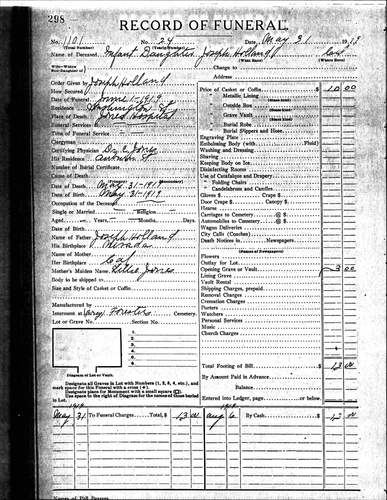 298
RECORD OF FUNERAL
No. 1101 No. 24 Date May 31 1919
(Total Number) (Yearly Number)
Name of Deceased Infant Daughter Joseph Holland
(What Race) (Where Born)
Wife—Widow
Son—Daughter of
Charge to
Address
Order Given by Joseph Holland
How Secured
Date of Funeral June 1-1919
Residence Washington St
Place of Death Jones Hospital
Funeral Services at
Time of Funeral Service
Clergyman
Certifying Physician Dr. C. Jones
His Residence Auburn St
Number of Burial Certificate
Cause of Death
Date of Death May 31-1919
Date of Birth May 31-1919
Occupation of the Deceased
Single or Married Religion
Aged Years, Months, Days.
Date of Birth
Name of Father Joseph Holland
His Birthplace Nevada
Name of Mother
Her Birthplace Cal
Mother's Maiden Name Lillie Jones
Body to be shipped to
Size and Style of Casket or Coffin
Manufactured by
Interment at Foresters Cemetery.
Lot or Grave No. Section No.
1.
2.
3.
4.
5.
6.
Diagram of Lot or Vault.
Designate all Graves in Lot with Numbers (1, 2, 3, 4, etc.), and
mark space for this Funeral with a cross (+).
Designate place for Monument with a small square (□).
Use space to the right of Diagram for the names of those buried
in Lot.
Price of Casket or Coffin $ 10 00
" Metallic Lining
(State Kind)
" Outside Box
(State Kind)
" Grave Vault
(State Kind)
" Burial Robe
(State Kind)
" Burial Slippers and Hose
Engraving Plate
Embalming Body (with Fluid)
Washing and Dressing
Shaving
Keeping Body on Ice
Disinfecting Rooms
Use of Catafalque and Drapery
" Folding Chairs
" Candelabrum and Candles
Gloves $ Crape $
Door Crape $ Canopy $
Hearse
Carriages to Cemetery @ $
Automobiles to Cemetery @ $
Wagon Deliveries
City Calls (Coaches)
Death Notices in Newspapers
(Names of Newspapers)
Flowers
Outlay for Lot
Opening Grave or Vault 3 00
Lining Grave
Vault Rental
Shipping Charges, prepaid
Removal Charges
Cremation Charges
Porters
Watchers
Personal Services
Music
Church Charges
Total Footing of Bill $ 13 00
By Amount Paid in Advance
Balance
Entered into Ledger, page or below.
1919
May 31 To Funeral Charges Total, $ 13 00 Aug 6 By Cash $ 13 00
Names of Pall Bearers